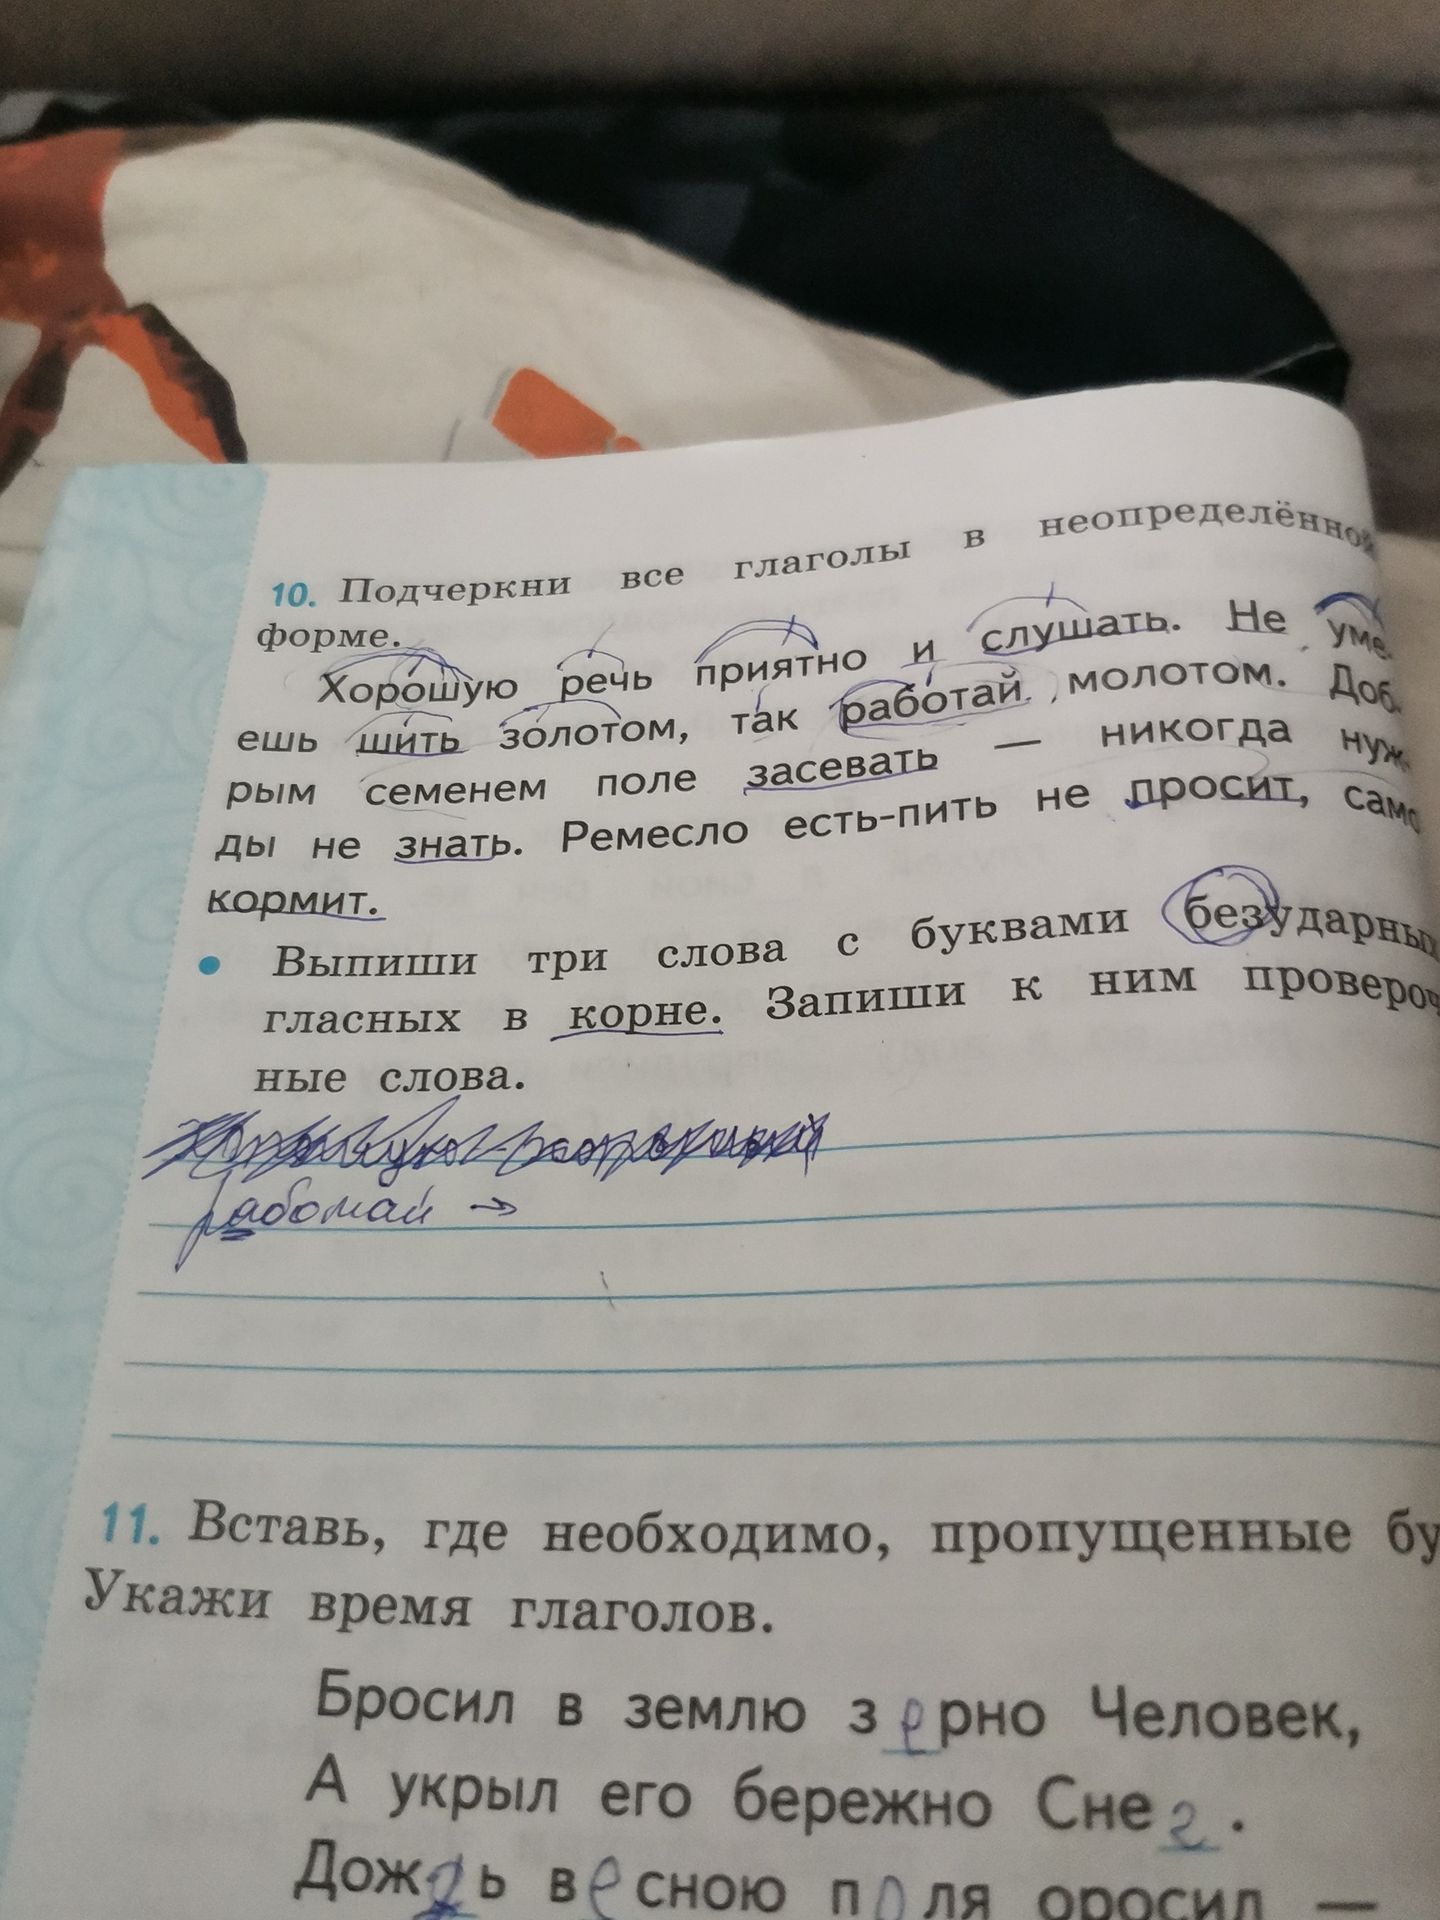 10. Подчеркни все глаголы в неопределённой
форме.
Хорошую речь приятно и слушать. Не уме-
ешь шить золотом, так работай молотом. Доб-
рым семенем поле засевать — никогда нуж-
ды не знать. Ремесло есть-пить не просит, само
кормит.
• Выпиши три слова с буквами безударных
гласных в корне. Запиши к ним провероч
ные слова.
работай →
11. Вставь, где необходимо, пропущенные бу
Укажи время глаголов.
Бросил в землю зерно Человек,
А укрыл его бережно Снег.
Дождь весною поля оросил —